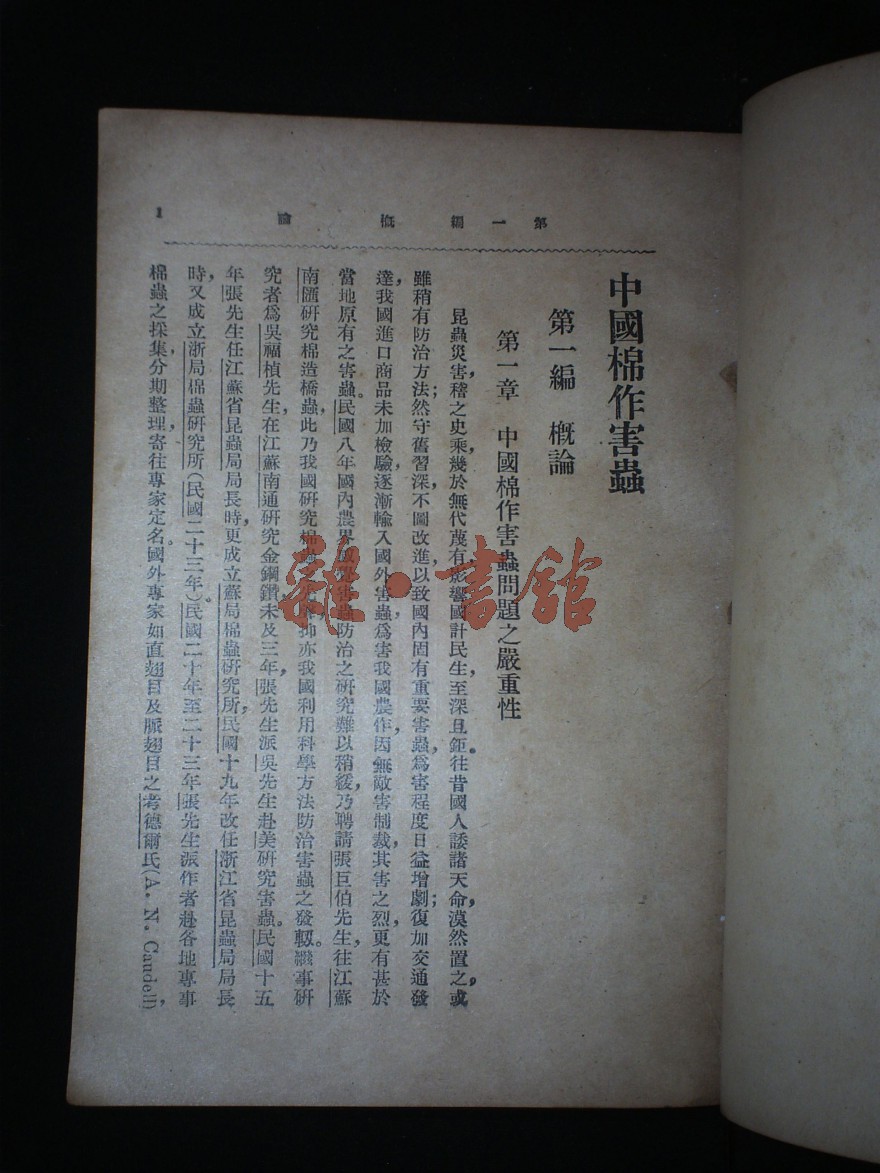 第一編 概論
1
中國棉作害蟲
第一編 概論
第一章 中國棉作害蟲問題之嚴重性
昆蟲災害,稽之史乘,幾於無代蔑有,影響國計民生,至深且鉅。往昔國人諉諸天命,漠然置之,或
雖稍有防治方法;然守舊習深,不圖改進,以致國內固有重要害蟲,爲害程度日益增劇;復加交通發
達,我國進口商品未加檢驗,逐漸輸入國外害蟲,爲害我國農作,因無敵害制裁,其害之烈,更有甚於
當地原有之害蟲。民國八年國內農界 害蟲防治之研究難以稍緩,乃聘請張巨伯先生,往江蘇
南匯研究棉造橋蟲,此乃我國研究棉蟲 抑亦我國利用科學方法防治害蟲之發軔。繼事研
究者爲吳福楨先生,在江蘇南通研究金鋼鑽,未及三年,張先生派吳先生赴美研究害蟲。民國十五
年張先生任江蘇省昆蟲局局長時,更成立蘇局棉蟲研究所,民國十九年改任浙江省昆蟲局局長
時,又成立浙局棉蟲研究所(民國二十三年)。民國二十年至二十三年張先生派作者赴各地專事
棉蟲之採集,分期整理,寄往專家定名。國外專家如直翅目及脈翅目之考德爾氏(A. N. Caudell),
雜·書館